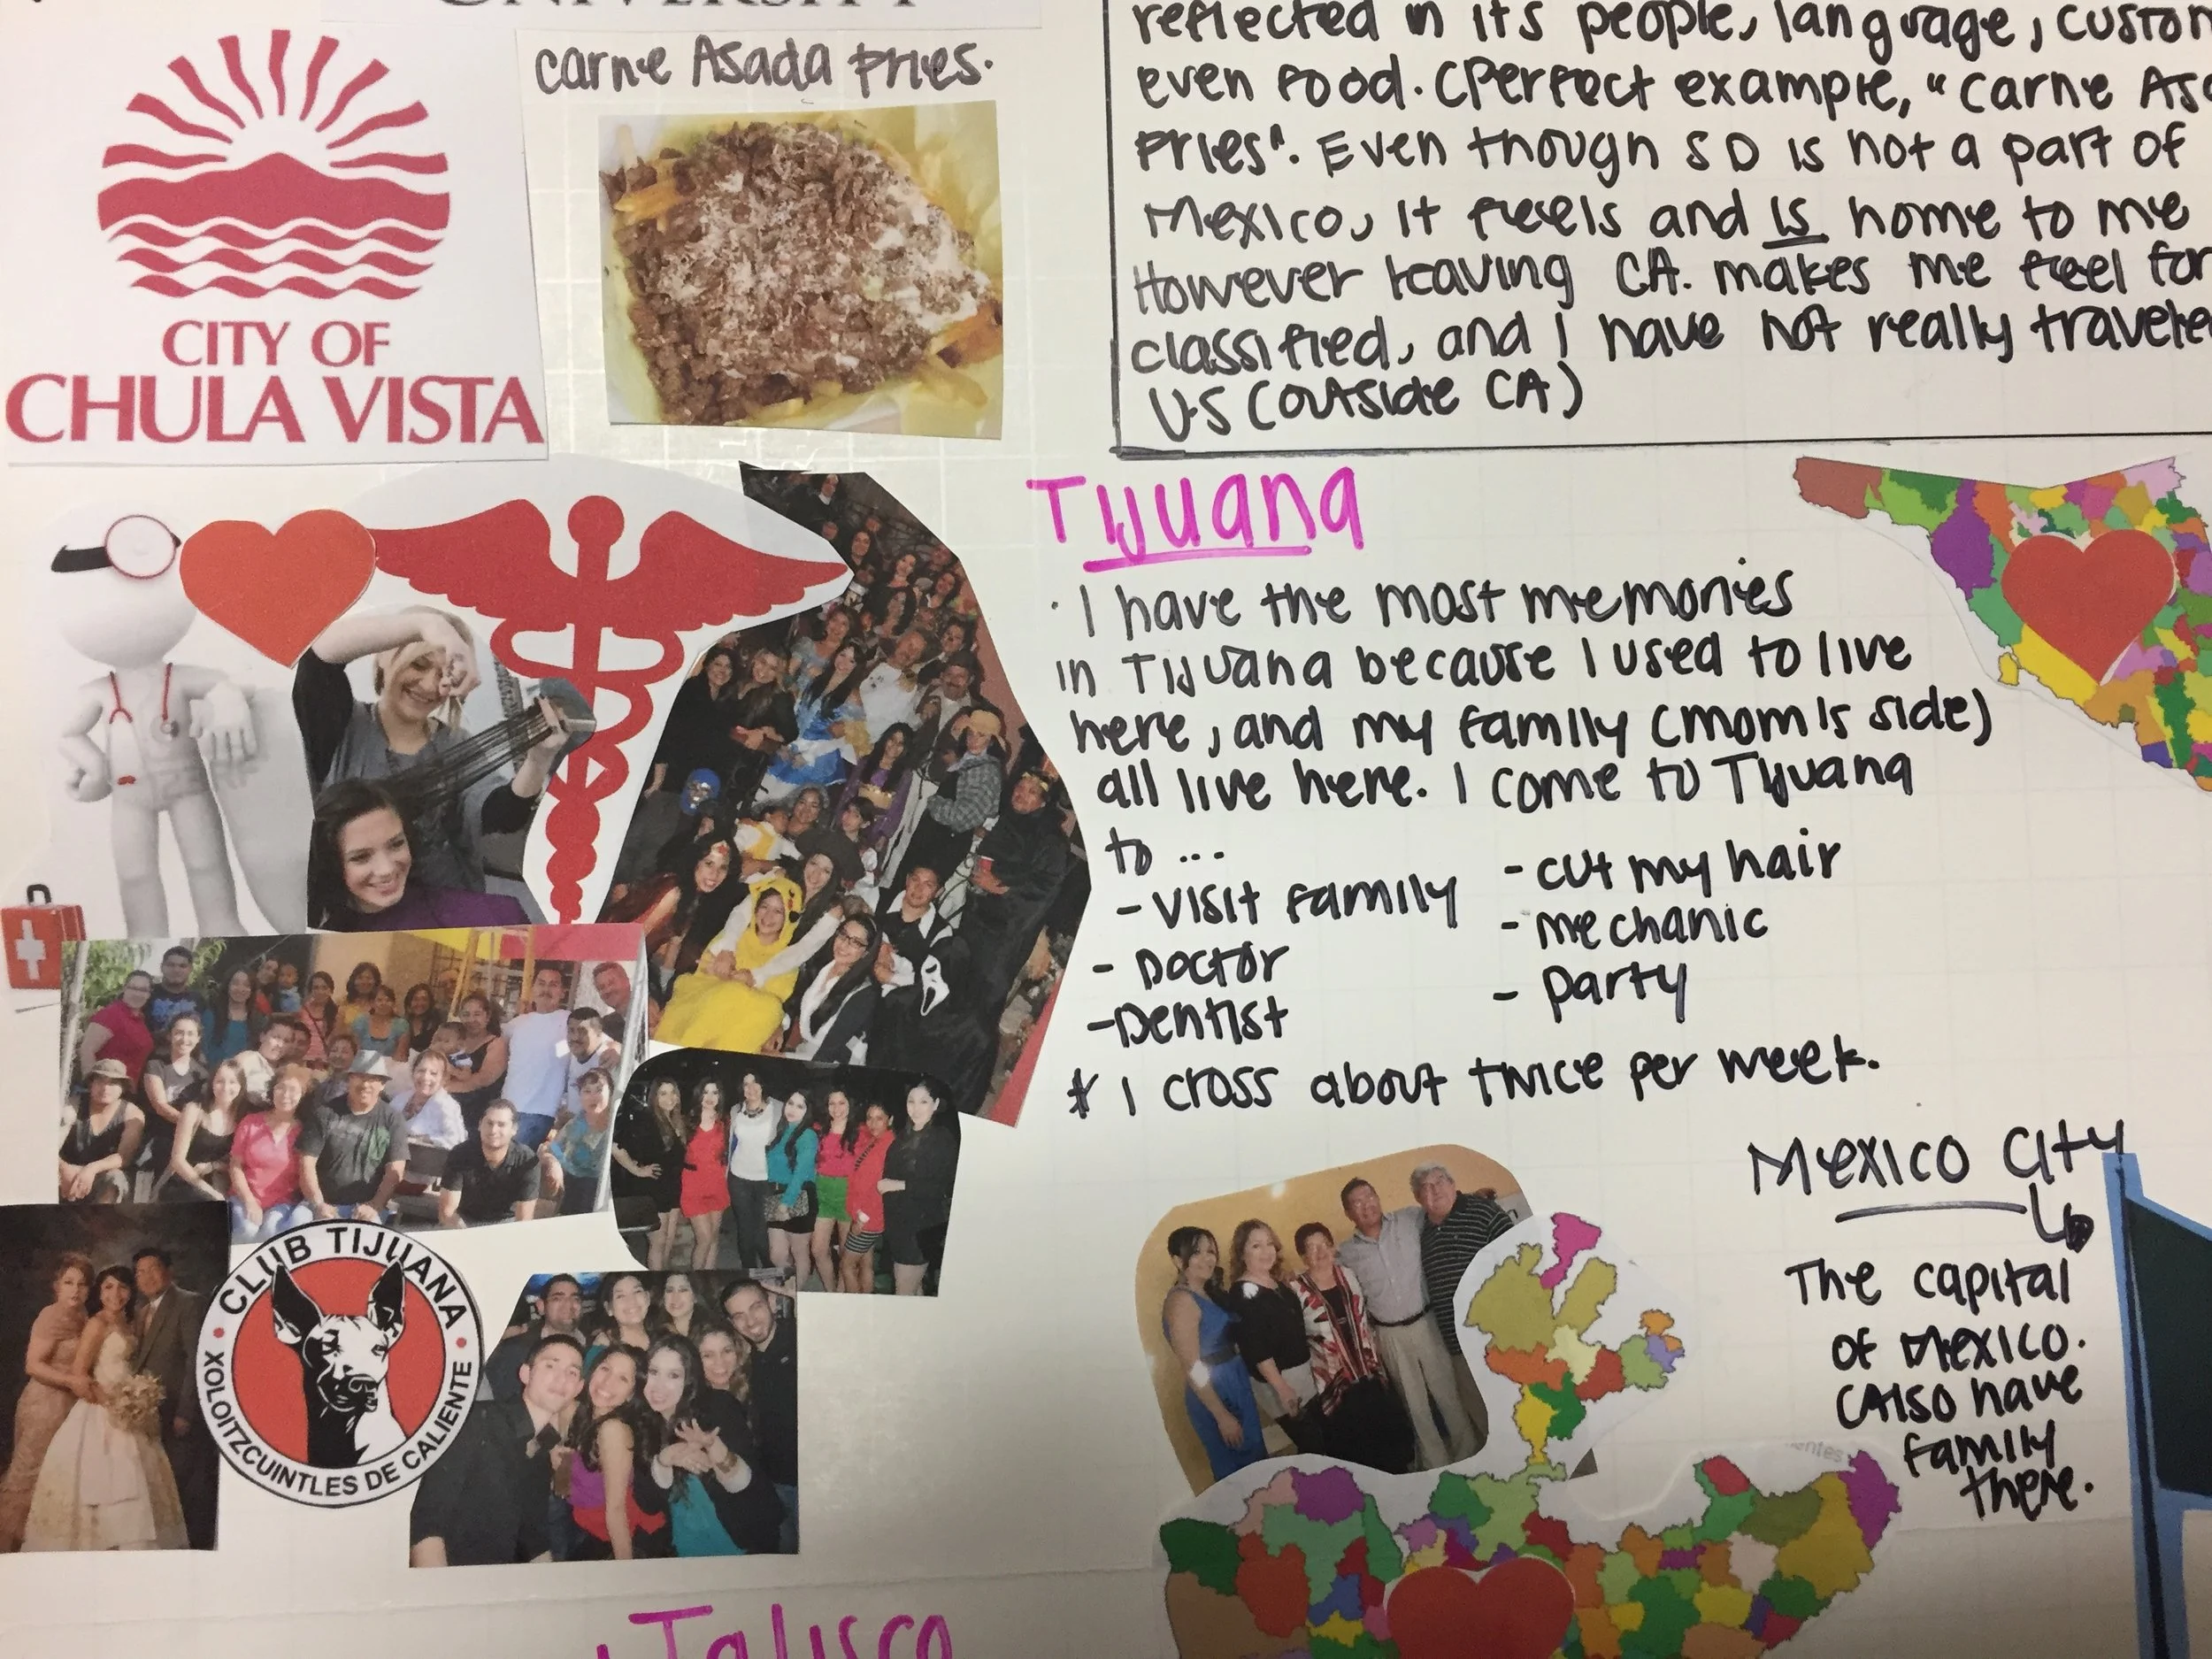 UNIVERSITY
CITY OF
CHULA VISTA
carne Asada Fries.
reflected in its people, language, custom
even food. (Perfect example, "Carne Asa
Fries". Even though SD is not a part of
Mexico, it feels and is home to me
However leaving CA. makes me feel for
classified, and I have not really travele
U.S (outside CA)
Tijuana
· I have the most memories
in Tijuana because I used to live
here, and my family (mom's side)
all live here. I come to Tijuana
to ...
- visit family
- Doctor
- Dentist
- cut my hair
- mechanic
- party
* I cross about twice per week.
Mexico City
The capital
of Mexico.
(Also have
family
there.
CLUB TIJUANA
XOLOITZCUINTLES DE CALIENTE
Jalisco